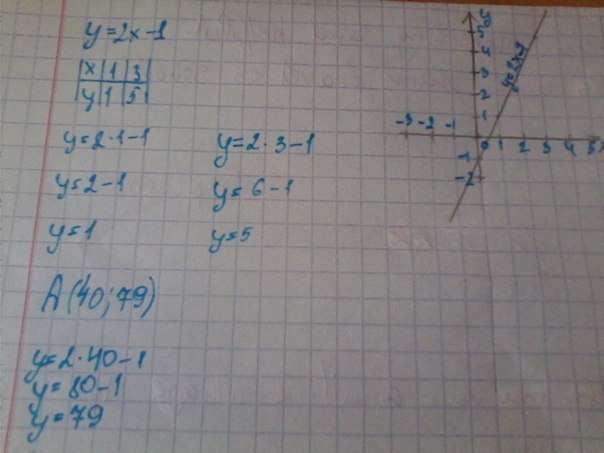 y=2x-1
x 1 3
y 1 5
y=2·1-1 y=2·3-1
y=2-1 y=6-1
y=1 y=5
A(40;79)
y=2·40-1
y=80-1
y=79
y
5
4
3
2
1
-3 -2 -1 0 1 2 3 4 5 x
-1
-2
y=2x-1